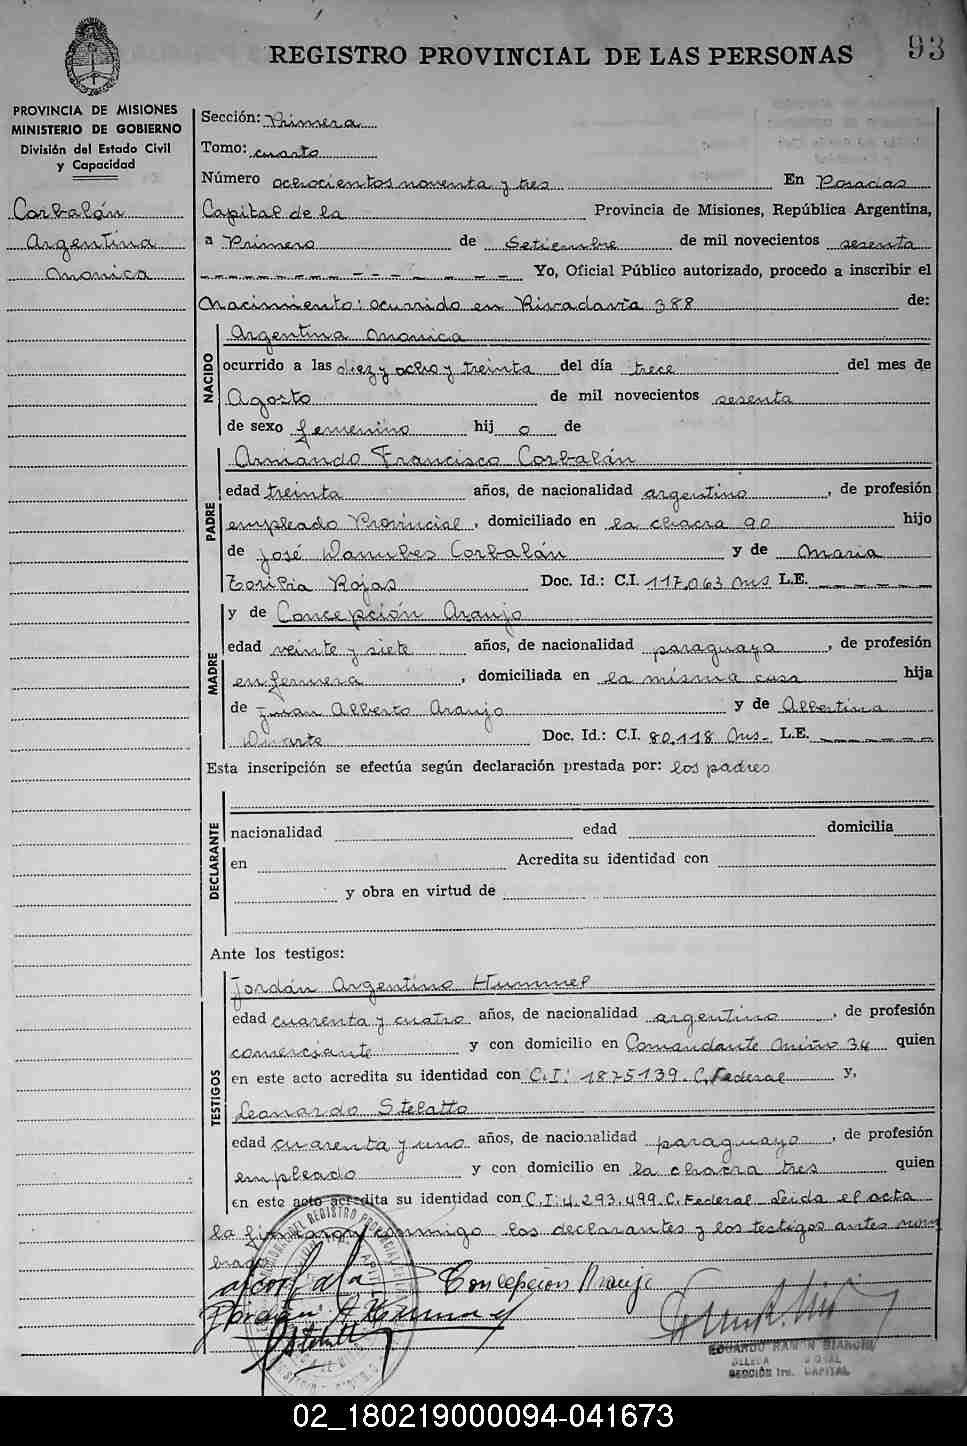 REGISTRO PROVINCIAL DE LAS PERSONAS
93
PROVINCIA DE MISIONES
MINISTERIO DE GOBIERNO
División del Estado Civil
y Capacidad
Corbalán
Argentina
Monica
Sección: Primera
Tomo: cuarto
Número ochocientos noventa y tres En Posadas
Capital de la Provincia de Misiones, República Argentina,
a Primero de Setiembre de mil novecientos sesenta
Yo, Oficial Público autorizado, procedo a inscribir el
Nacimiento: ocurrido en Rivadavia 388 de:
NACIDO
Argentina Monica
ocurrido a las diez y ocho y treinta del día trece del mes de
Agosto de mil novecientos sesenta
de sexo femenino hij o de
PADRE
Armando Francisco Corbalán
edad treinta años, de nacionalidad argentino, de profesión
empleado Provincial, domiciliado en la chacra 90 hijo
de José Danubes Corbalán y de Maria
Rojas Doc. Id.: C.I. 117.063 Mis L.E.
MADRE
y de Concepción Araujo
edad veinte y siete años, de nacionalidad paraguaya, de profesión
enfermera, domiciliada en la misma casa hija
de Juan Alberto Araujo y de Albertina
Duarte Doc. Id.: C.I. 80.118 Mis. L.E.
Esta inscripción se efectúa según declaración prestada por: los padres
DECLARANTE
nacionalidad edad domicilia
en Acredita su identidad con
y obra en virtud de
Ante los testigos:
TESTIGOS
Jordán Argentino Hummel
edad cuarenta y cuatro años, de nacionalidad argentino, de profesión
comerciante y con domicilio en Comandante Miño 34 quien
en este acto acredita su identidad con C.I: 1875139. C. Federal y,
Leonardo Stelatto
edad cuarenta y uno años, de nacionalidad paraguayo, de profesión
empleado y con domicilio en la chacra tres quien
en este acto acredita su identidad con C.I: 4.293.499. C. Federal. Leida el acta
la firmaron conmigo los declarantes y los testigos antes nom
brados
Concepcion Araujo
Jordán A Hummel
EDUARDO RAMON BIANCHI
SECCIÓN 1ra. CAPITAL
02_180219000094-041673